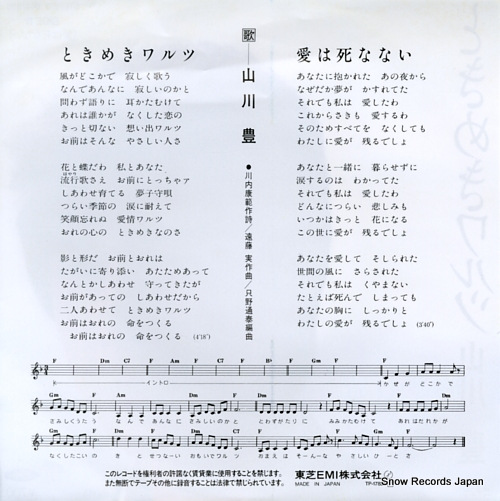 ときめきワルツ
風がどこかで 寂しく歌う
なんであんなに 寂しいのかと
問わず語りに 耳かたむけて
あれは誰かが なくした恋の
きっと切ない 想い出ワルツ
お前はそんな やさしい人さ
花と蝶だわ 私とあなた
流行歌さえ お前にとっちゃァ
しあわせ育てる 夢子守唄
つらい季節の 涙に耐えて
笑顔忘れぬ 愛情ワルツ
おれの心の ときめきなのさ
影と形だ お前とおれは
たがいに寄り添い あたためあって
なんとかしあわせ 守ってきたが
お前があっての しあわせだから
二人あわせて ときめきワルツ
お前はおれの 命をつくる
お前はおれの 命をつくる (4'18")
歌──山川 豊
●川内康範作詩/遠藤 実作曲/只野通泰編曲
愛は死なない
あなたに抱かれた あの夜から
なぜだか夢が かすれてた
それでも私は 愛したわ
これからさきも 愛するわ
そのためすべてを なくしても
わたしに愛が 残るでしょ
あなたと一緒に 暮らせずに
涙するのは わかってた
それでも私は 愛したわ
どんなにつらい 悲しみも
いつかはきっと 花になる
この世に愛が 残るでしょ
あなたを愛して そしられた
世間の風に さらされた
それでも私は くやまない
たとえば死んで しまっても
あなたの胸に しっかりと
わたしの愛が 残るでしょ (3'40")
F Dm C7 F Am C7 F B♭ F C7 F F
イントロ かぜがどこかで
Gm F Am Dm C7 F Gm F
さみしくうたう なんであんなにさみしいのかと とわずがたりに みみかたむけて あれはだれかが
Gm C7 F Am Dm C7 F
なくしたこいの きっとせつない おもいでワルツ おまえはそんな やさしいひとさ
このレコードを権利者の許諾なく賃貸業に使用することを禁じます。
また無断でテープその他に録音することは法律で禁じられています。
東芝EMI株式会社
MADE IN JAPAN
Snow Records Japan